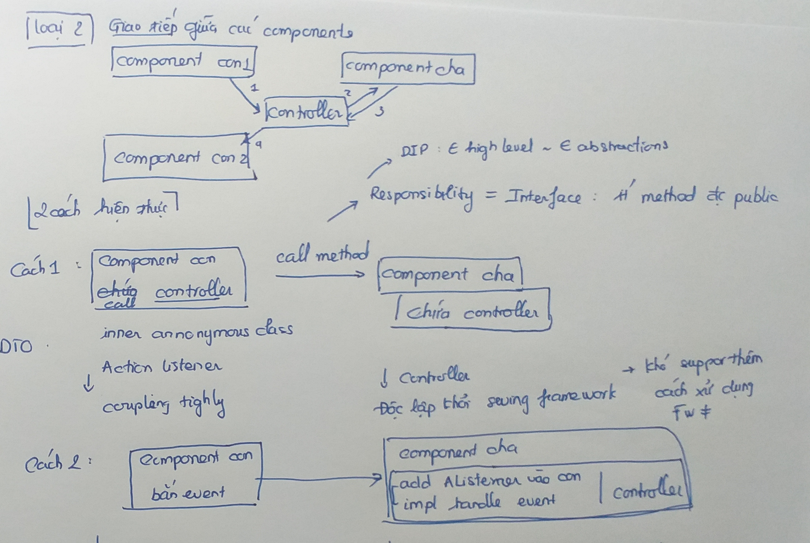 loại 2 Giao tiếp giữa các components
component con 1
component cha
1
2
controller
3
4
component con 2
DIP : ∈ high level ~ ∈ abstractions
Responsibility = Interface : # method đc public
2 cách hiện thực
Cách 1 : component con
call controller
call method
component cha
chứa controller
inner annonymous class
DTO
Action listener
↓ coupling tighly
↓ Controller
Độc lập khỏi swing framework
→ khó support thêm
cách xử dụng
Fw ≠
Cách 2 : component con
bắn event
component cha
- add AListener vào con
- impl handle event
controller